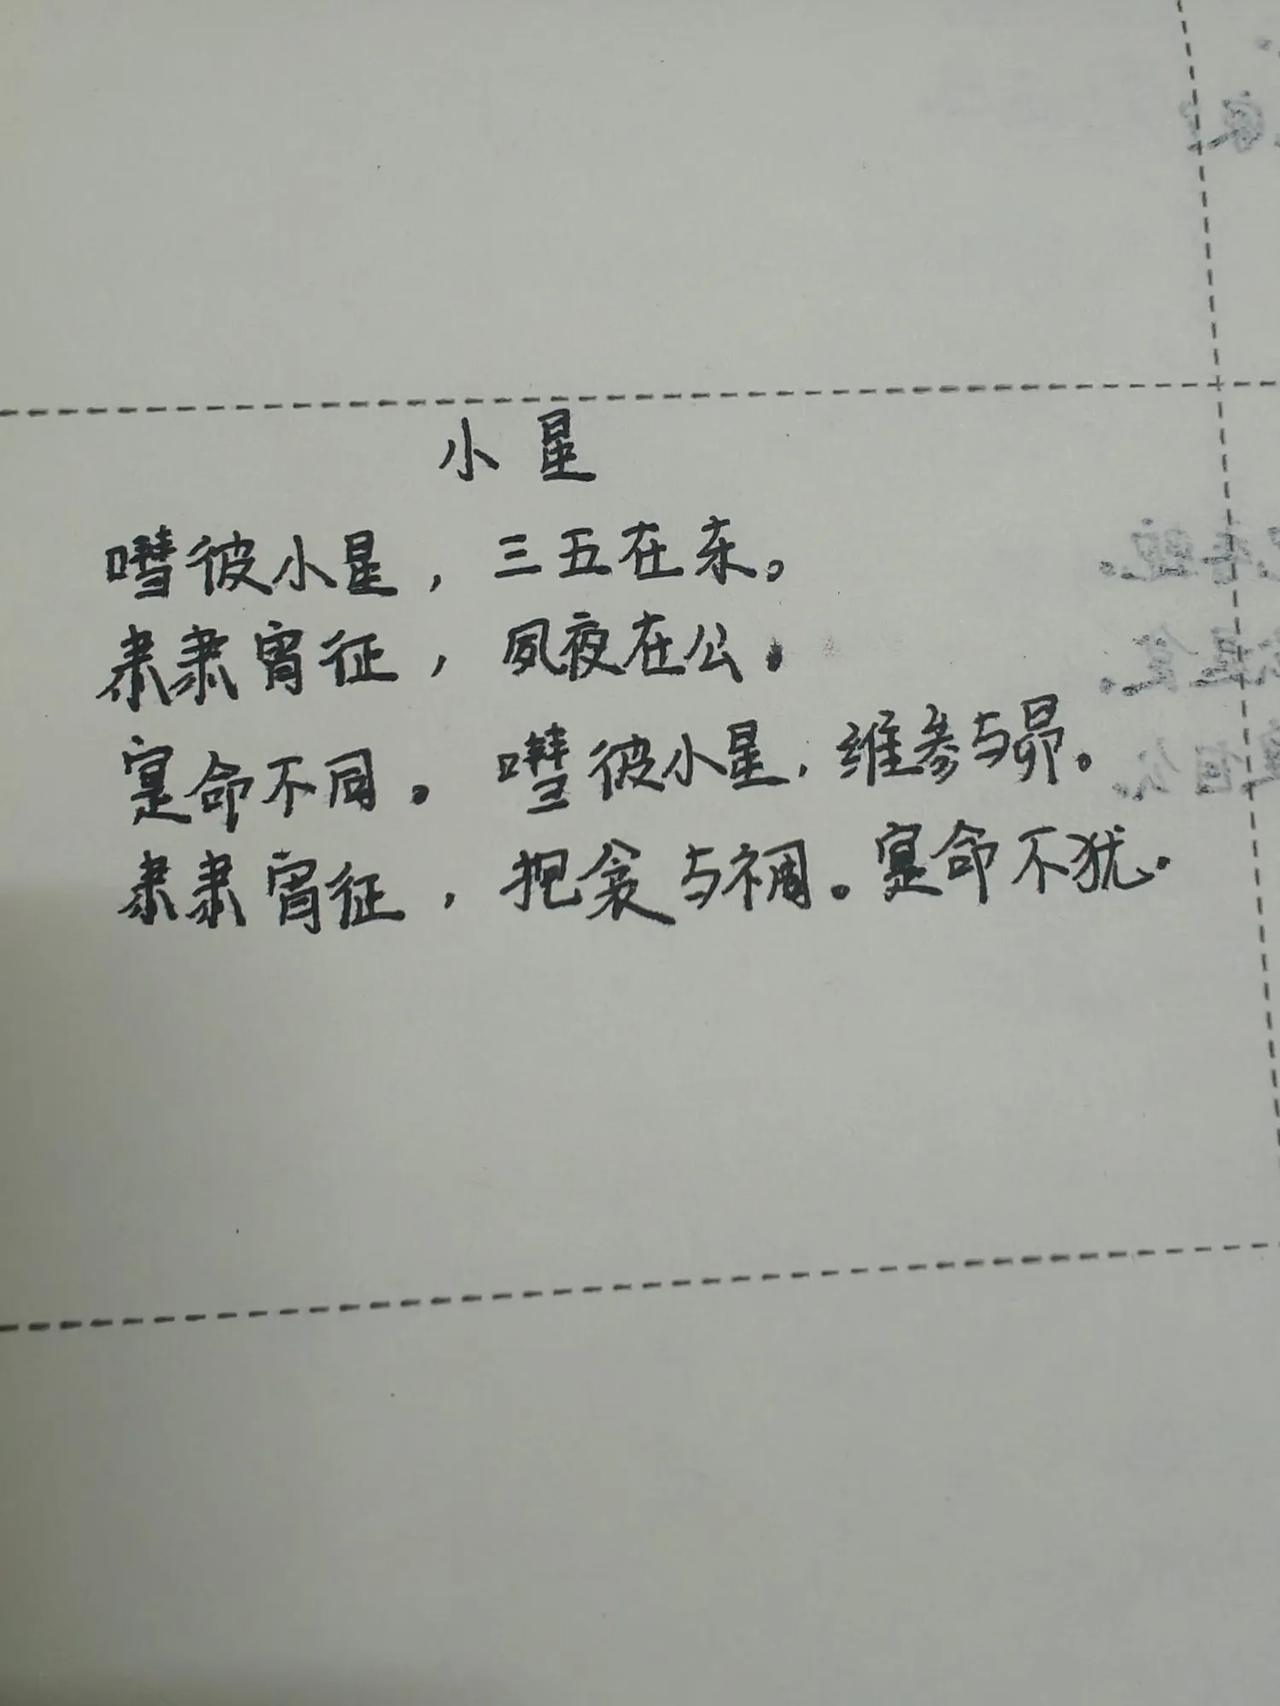 小星
嘒彼小星，三五在东。
肃肃宵征，夙夜在公。
寔命不同。嘒彼小星，维参与昴。
肃肃宵征，抱衾与裯。寔命不犹。